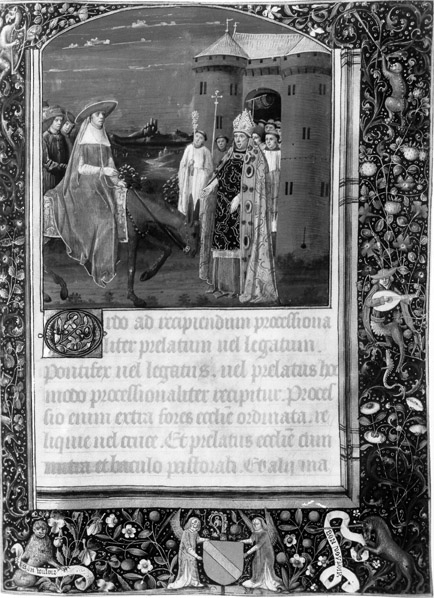 Ordo ad recipiendum processiona
liter prelatum uel legatum
Pontifex uel legatus, uel prelatus hoc
modo processionaliter recipitur. Proces
sio enim extra fores ecclie ordinata, re
liquie uel cruce. Et prelatus ecclie cum
mitra et baculo pastorali. Et alij ma